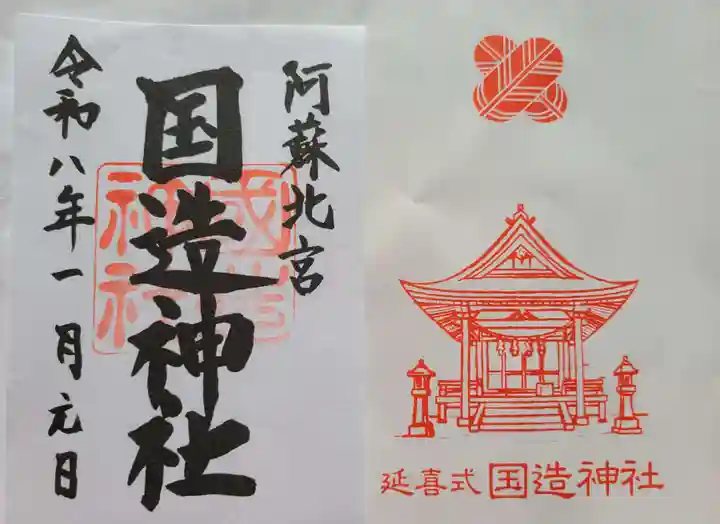 阿蘇北宮
国造神社
國造
神社
令和八年一月元日
延喜式 国造神社